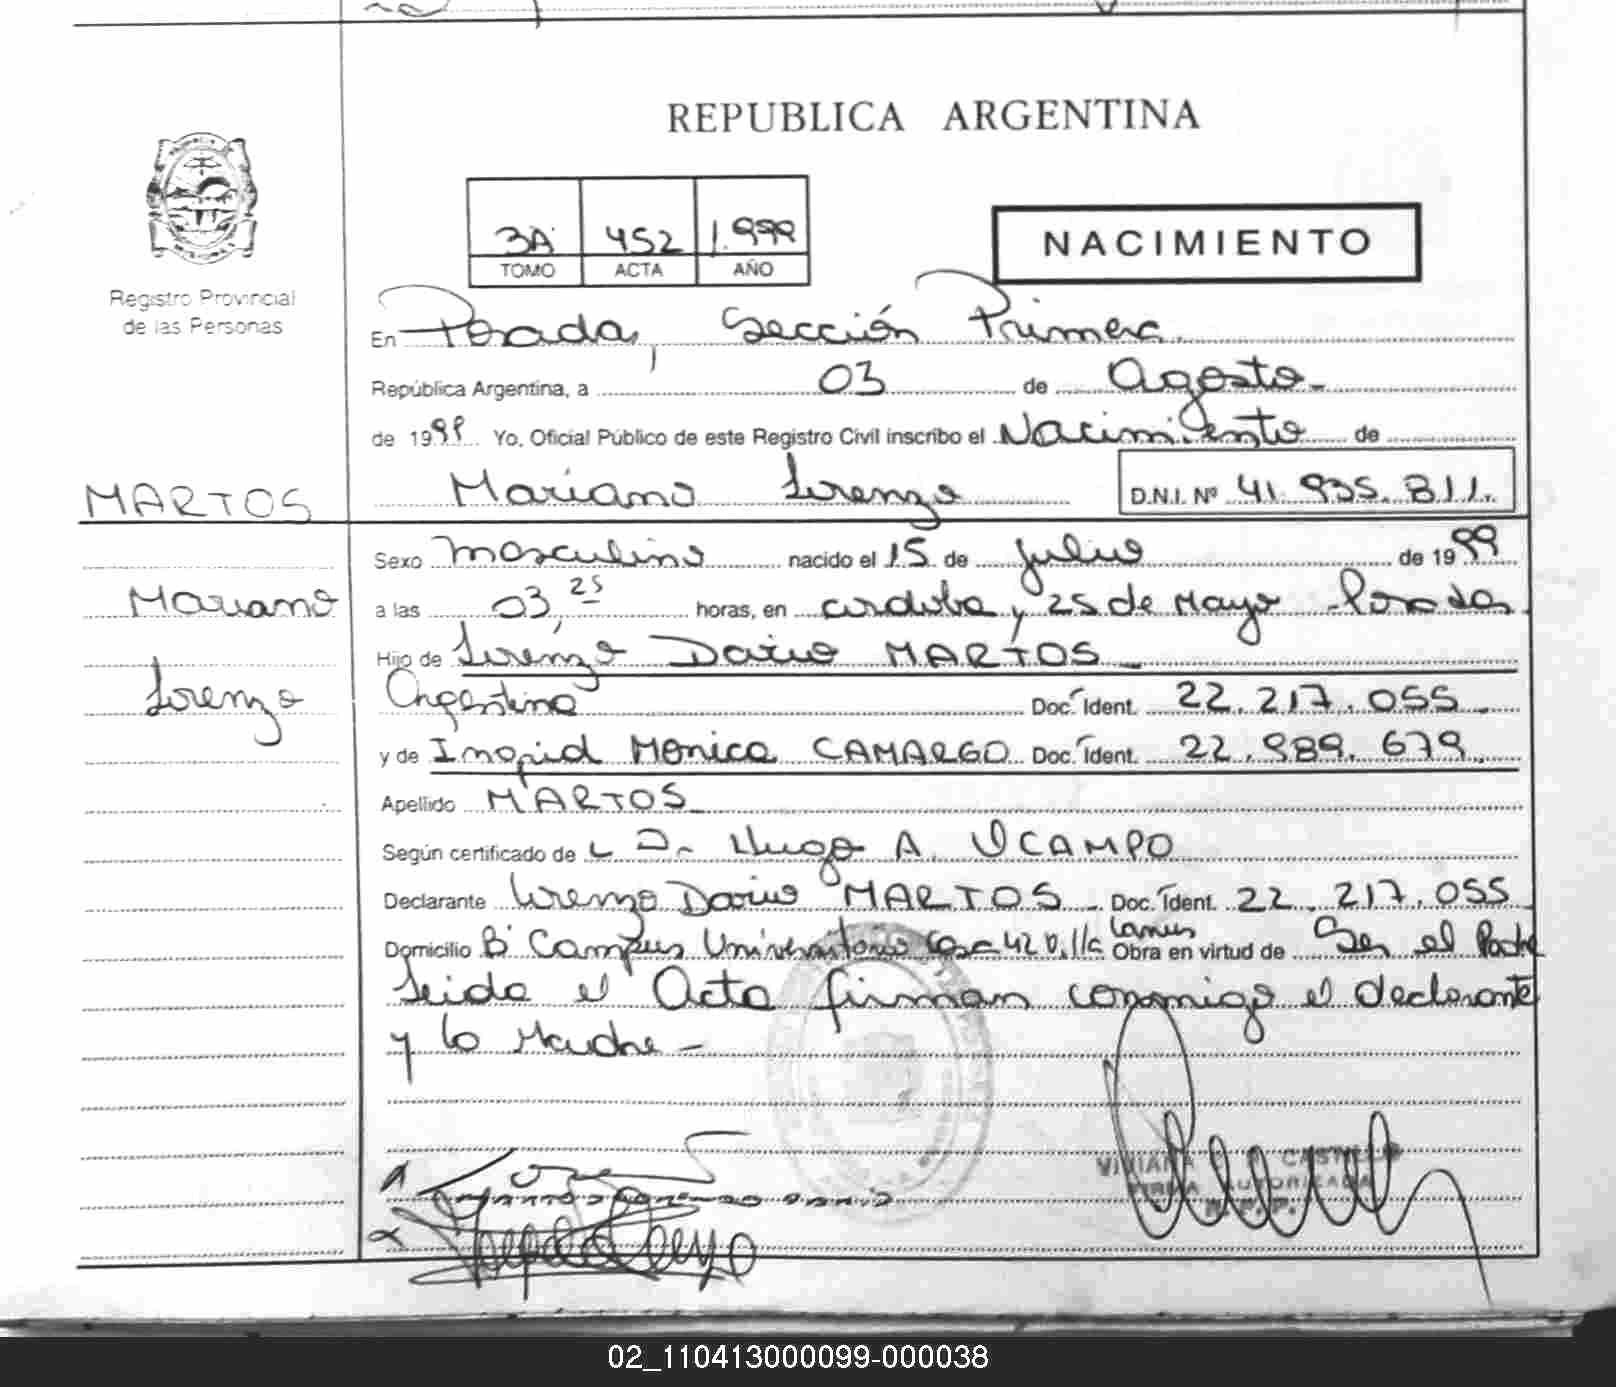 REPUBLICA ARGENTINA
3A 452 1.999
TOMO ACTA AÑO
NACIMIENTO
Registro Provincial
de las Personas
En Posadas, Sección Primera
República Argentina, a 03 de Agosto
de 1999 Yo, Oficial Público de este Registro Civil inscribo el Nacimiento de
MARTOS
Mariano Lorenzo D.N.I. Nº 41.935.811.
Sexo masculino nacido el 15 de Julio de 1999
Mariano
a las 03,25 horas, en cordoba y 25 de Mayo Posadas
Hijo de Lorenzo Dario MARTOS
Lorenzo
Argentino Doc. Ident. 22.217.055
y de Ingrid Monica CAMARGO Doc. Ident. 22.989.679
Apellido MARTOS
Según certificado de Dr. Hugo A. OCAMPO
Declarante Lorenzo Dario MARTOS Doc. Ident. 22.217.055
Domicilio B° Campus Universitario Casa 42 Villa Lanus Obra en virtud de Ser el Padre
Leida el Acta firman conmigo el declarante
y la Madre -
VIVIANA CASTILLO
FIRMA AUTORIZADA
R.P.P.
02_110413000099-000038